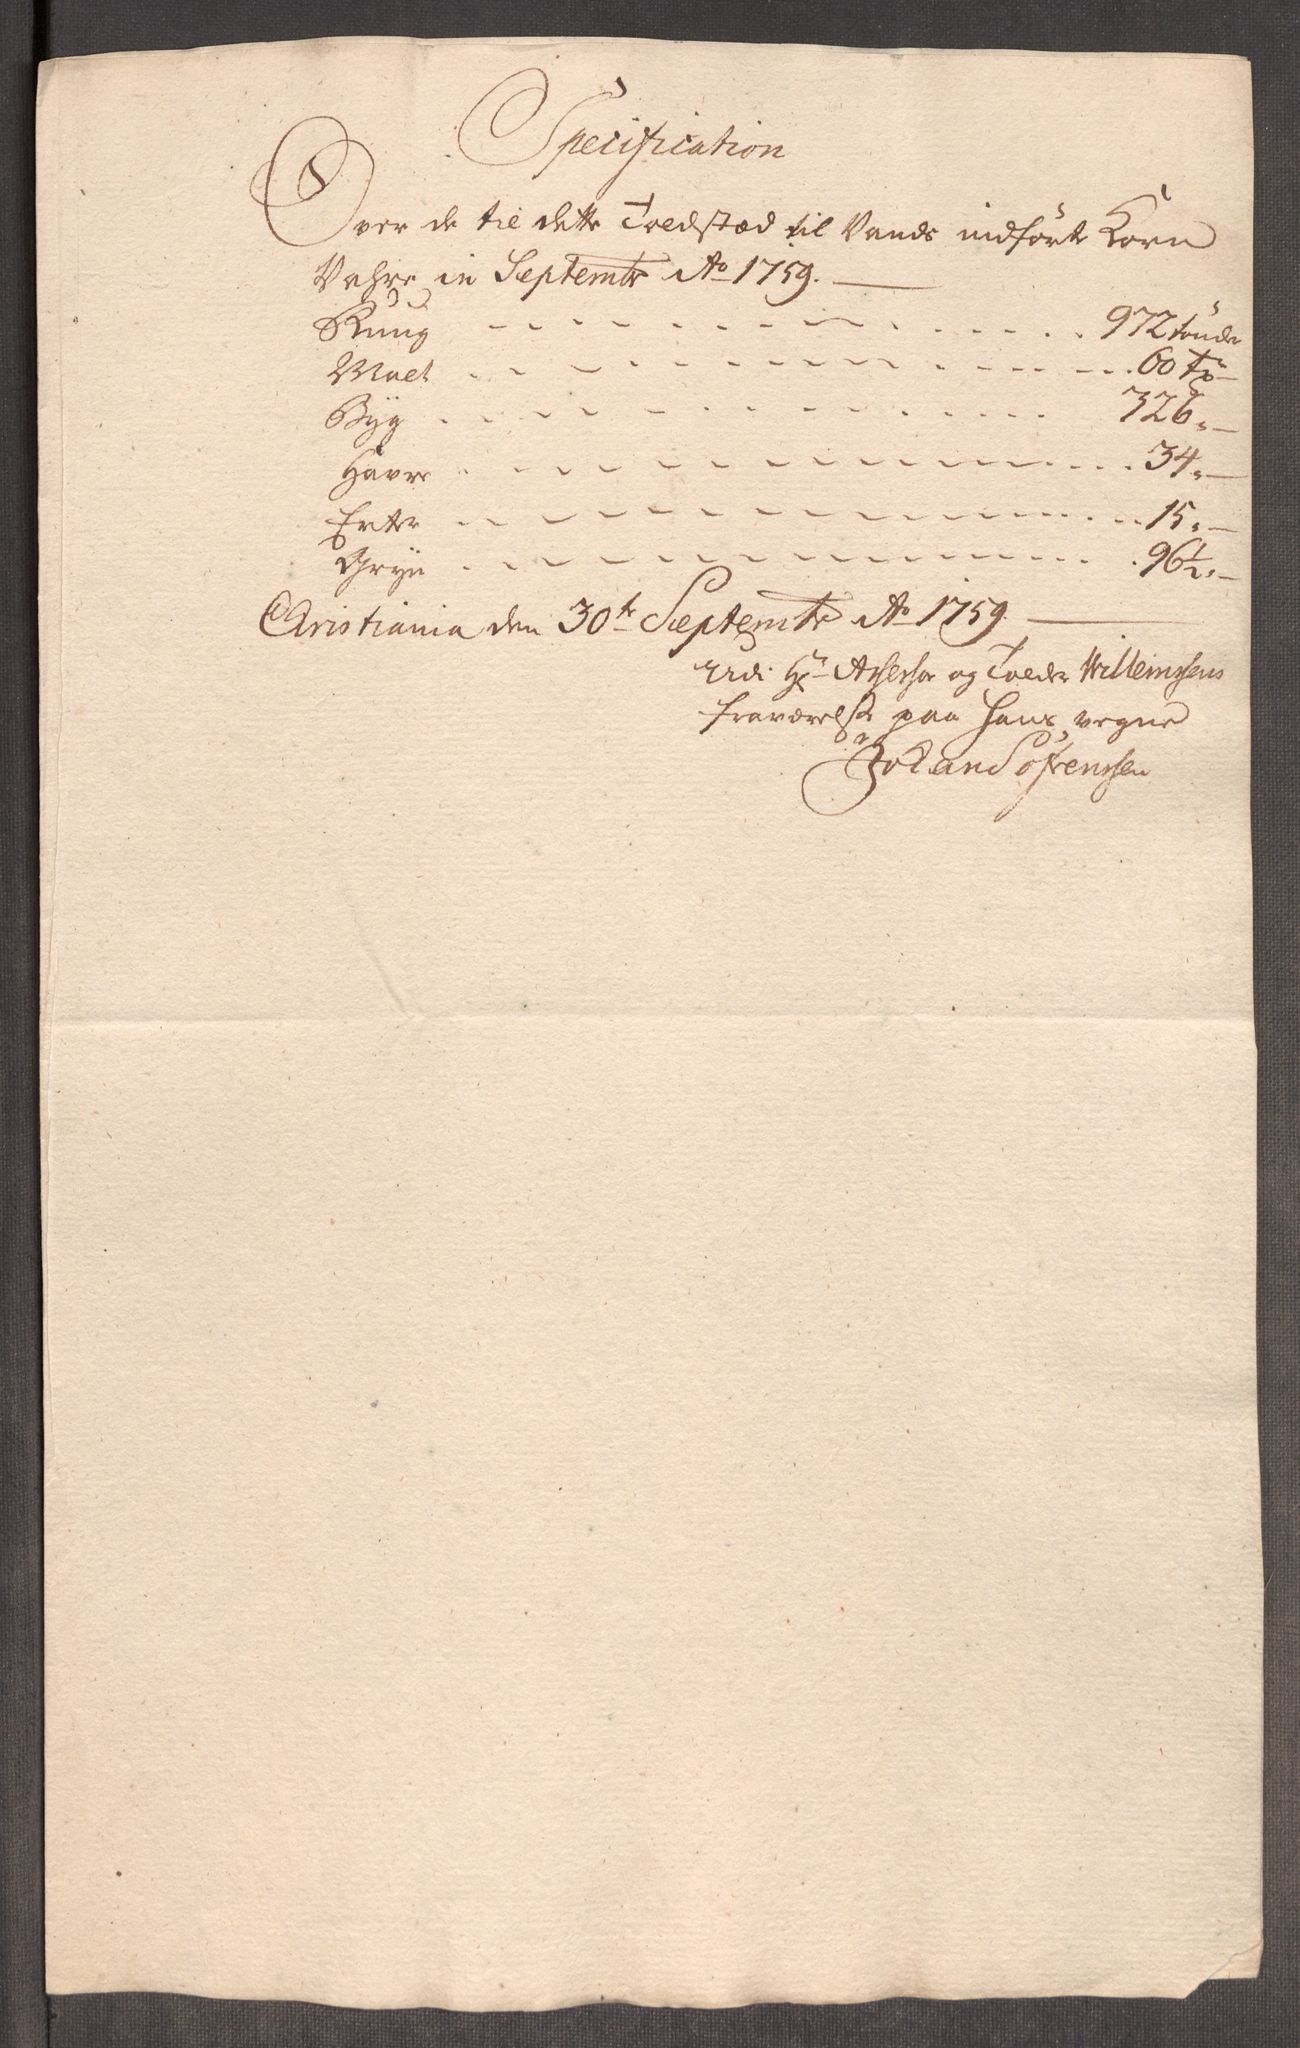 Specification
Over de til dette Toldstæd til Vands indførte Korn
Vahre in Septembr Ao 1759.
Rüug - - - 972 tönder
Malt - - - 60 Tr
Byg - - - 326 "
Havre - - - 34 "
Erter - - - 15 "
Gryn - - - 96½ "
Christiania den 30te Septembr Ao 1759.
Udi Hr Assessor og Tolder Willemssens
fraværelse paa hans vegne
Johan Sörenssen